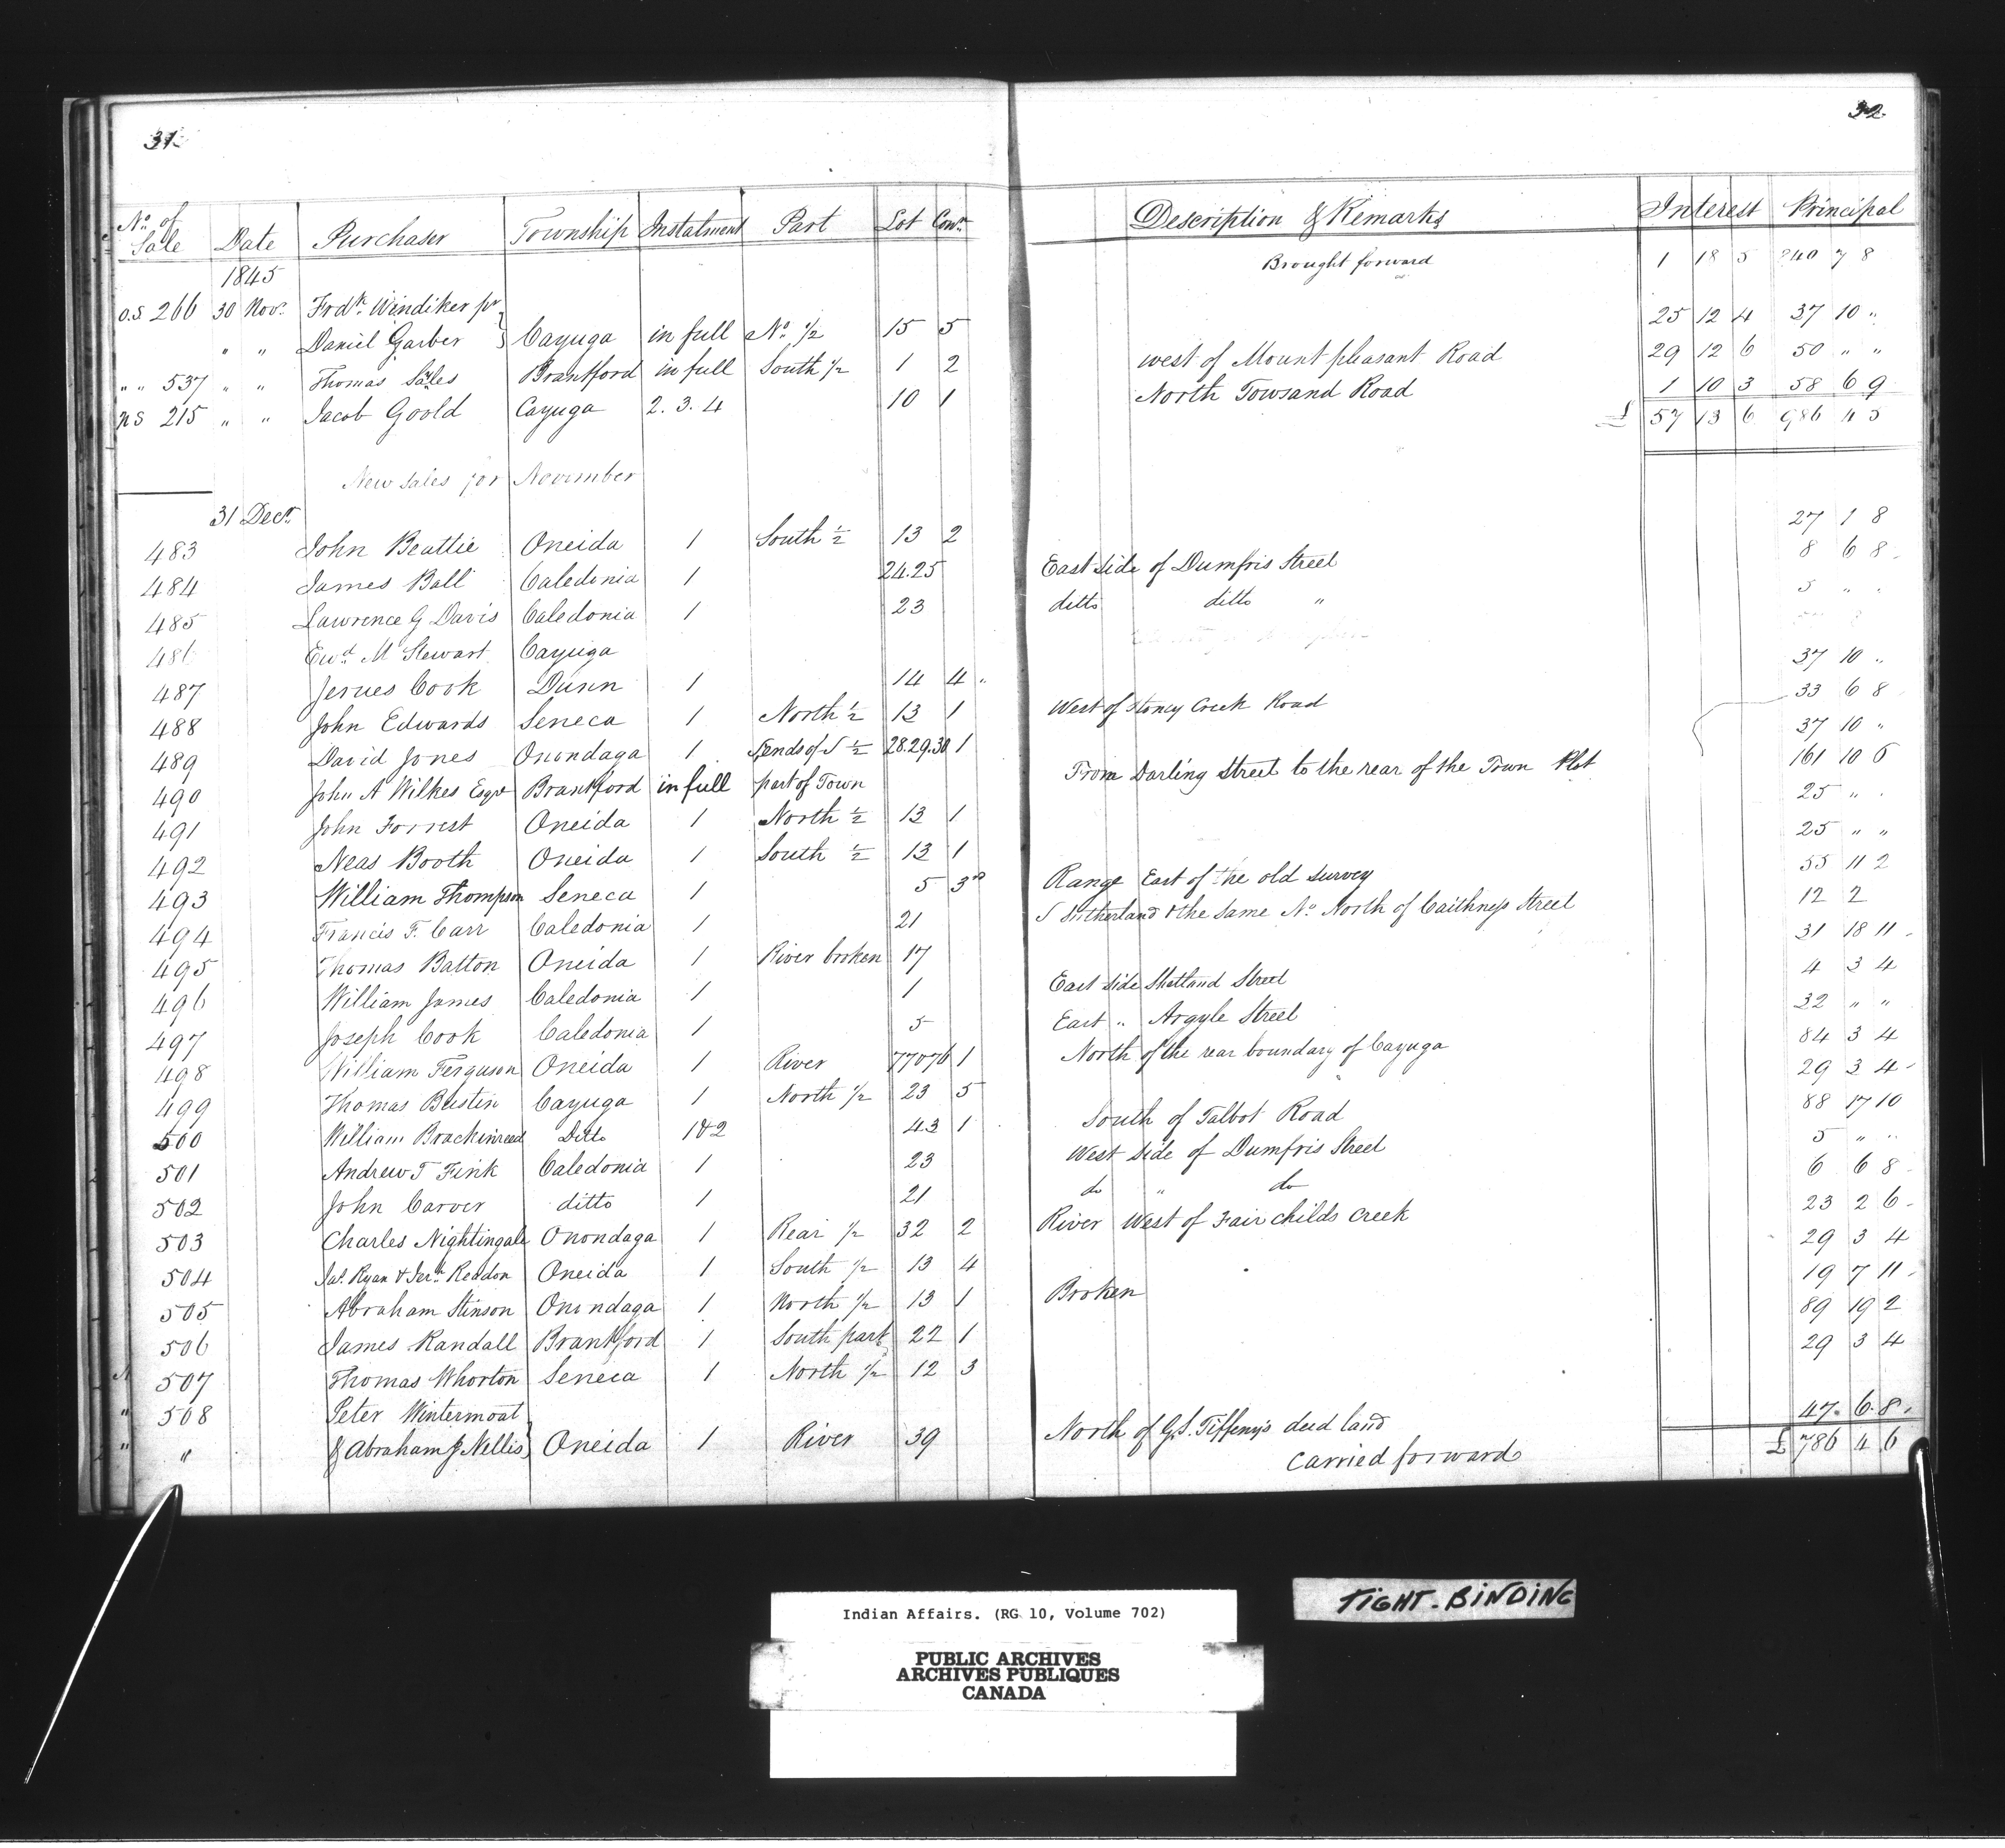 31
32
No. of Sale Date Purchaser Township Instalment Part Lot Con. Description & Remarks Interest Principal
1845 Brought forward 1 18 5 840 7 8
O.S 266 30 Novr. Fredk. Windiker pr
" " Daniel Garber } Cayuga in full No. 1/2 15 5 25 12 4 37 10 "
" " 537 " " Thomas Sales Brantford in full South 1/2 1 2 west of Mount pleasant Road 29 12 6 50 " "
NS 215 " " Jacob Goold Cayuga 2. 3. 4 10 1 North Towsand Road 1 10 3 58 6 9
£ 57 13 6 986 4 5
New Sales for November
31 Decr.
483 John Beattie Oneida 1 South 1/2 13 2 27 1 8
484 James Ball Caledonia 1 24.25 East side of Dumfris Street 8 6 8
485 Lawrence G Davis Caledonia 1 23 ditto ditto " 5 " "
486 Ewd. M Stewart Cayuga
487 Jerues Cook Dunn 1 14 4 37 10 "
488 John Edwards Seneca 1 North 1/2 13 1 West of Stoney Creek Road 33 6 8
489 David Jones Onondaga 1 ends of S 1/2 28.29.30 1 37 10 "
490 John A Wilkes Esqr Brantford in full part of Town From Darling Street to the rear of the Town Plot 161 10 6
491 John Forrest Oneida 1 North 1/2 13 1 25 " "
492 Neas Booth Oneida 1 South 1/2 13 1 25 " "
493 William Thompson Seneca 1 5 3rd Range East of the old survey 55 11 2
494 Francis F. Carr Caledonia 1 21 S Sutherland & the same No. North of Caithness Street 12 2
495 Thomas Batton Oneida 1 River broken 17 31 18 11
496 William James Caledonia 1 1 East side Shetland Street 4 3 4
497 Joseph Cook Caledonia 1 5 East " Argyle Street 32 " "
498 William Ferguson Oneida 1 River 1 North of the rear boundary of Cayuga 84 3 4
499 Thomas Bustin Cayuga 1 North 1/2 23 5 29 3 4
500 William Brackinreed Ditto 1&2 43 1 South of Talbot Road 88 17 10
501 Andrew T Fink Caledonia 1 23 West side of Dumfris Street 5 " "
502 John Carver ditto 1 21 do " do 6 6 8
503 Charles Nightingale Onondaga 1 Rear 1/2 32 2 River West of Fairchilds Creek 23 2 6
504 Jas. Ryan & Jerh. Reddon Oneida 1 South 1/2 13 4 29 3 4
505 Abraham Stinson Onondaga 1 North 1/2 13 1 Broken 19 7 11
506 James Randall Brantford 1 South part 22 1 89 19 2
507 Thomas Whorton Seneca 1 North 1/2 12 3 29 3 4
" 508 Peter Wintermoat
" " & Abraham J Nellis } Oneida 1 River 39 North of G.S. Tiffeny's deed land 47 6 8
Carried forward £ 786 4 6
TIGHT-BINDING
Indian Affairs. (RG 10, Volume 702)
PUBLIC ARCHIVES
ARCHIVES PUBLIQUES
CANADA